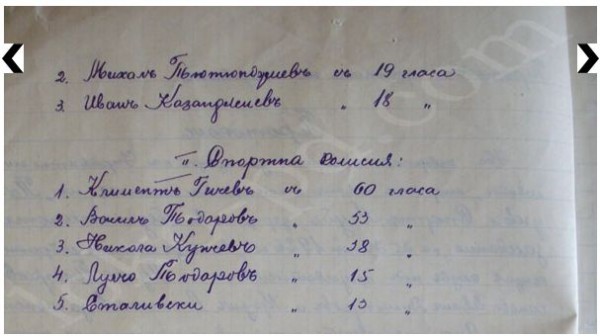 2. Михаилъ Тютюнджиевъ съ 19 гласа
3. Иванъ Казанджиевъ „ 18 „
II. Спортна комисия:
1. Климентъ Гичевъ съ 60 гласа
2. Василъ Тодоровъ „ 53 „
3. Никола Кужевъ „ 38 „
4. Лулчо Тодоровъ „ 15 „
5. Сталивски „ 13 „